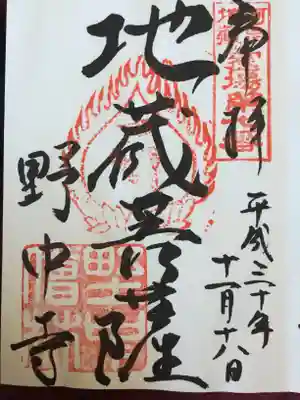 奉拝
平成三十年
十一月十八日
地蔵菩薩
野中寺